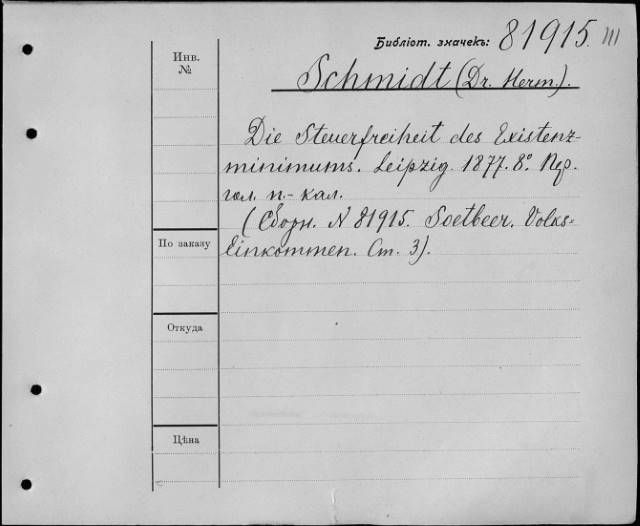 Библіот. значекъ: 81915. III
Инв.
№
Schmidt (Dr. Herm.).
Die Steuerfreiheit des Existenz-
minimums. Leipzig. 1877. 8º. Пер.
гол. п.- кал.
(Сборн. N 81915. Soetbeer. Volks-
Einkommen. Ст. 3).
По заказу
Откуда
Цѣна